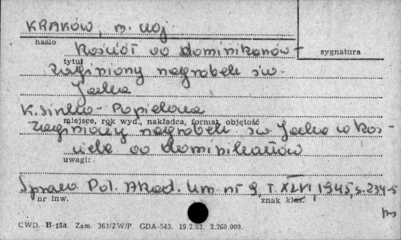 KRAKÓW, m. woj
hasło
Kościół oo dominikanów -
sygnatura
tytuł
zaginiony nagrobek św.
Jacka
K. Sinko-Popielowa
miejsce, rok wyd., nakładca, format, objętość
Zaginiony nagrobek św Jacka w koś-
ciele oo dominikanów
uwagi:
Spraw. Pol. Akad. Um. nr 9, T. XLVI, 1945, s. 234-5
nr inw.
znak klas.
C.W.D. B-15a. Zam. 363/ZW/P. GDA-543. 19.2.62. 2.260.000.